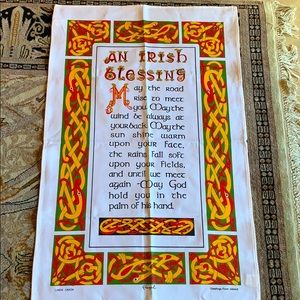 AN IRISH
Blessing
May the road
rise to meet
you. May the
wind be always at
your back. May the
sun shine warm
upon your face,
the rains fall soft
upon your fields,
and until we meet
again - May God
hold you in the
palm of his hand.